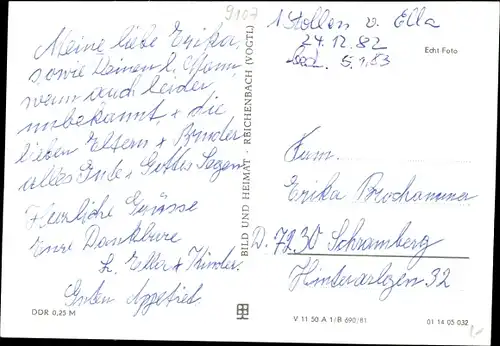 9107
1 Stollen v. Ella
24.12.82
bed. 5.1.83
Echt Foto
Meine liebe Erika,
sowie Deinen l. Mann,
wenn auch leider
unbekannt + die
lieben Eltern + Bruder
alles Gute + Gottes Segen
Herzliche Grüsse
Eure Dankbare
L. Elter + Kinder.
Guten Appetit.
DDR 0,25 M
BILD UND HEIMAT · REICHENBACH (VOGTL)
Fam.
Erika Brochammer
D. 7230 Schramberg
32
V 11 50 A 1/B 690/81
01 14 05 032